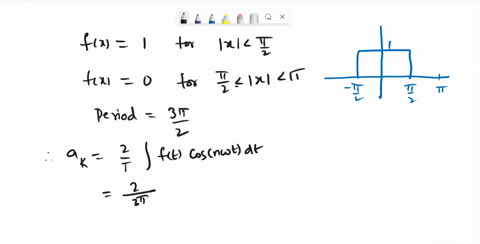 f(x) = 1 for |x| < π/2
f(x) = 0 for π/2 ≤ |x| < π
Period = 3π/2
∴ a_K = 2/T ∫ f(t) cos(nωt) dt
= 2/3π
1
-π/2 π/2 π